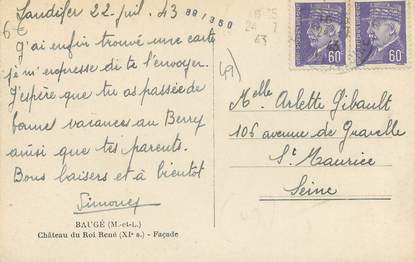 Landifer 22 juil. 43
6€
J'ai enfin trouvé une carte
je m'empresse de te l'envoyer.
J'espère que tu as passée de
bonne vacances au Berry
ainsi que tes parents.
Bons baisers et à bientôt
Simone
BAUGÉ (M.-et-L.)
Château du Roi René (XIe s.) - Façade
89/350
43
49)
60c
60c
Melle Arlette Gibault
106 avenue de Gravelle
St Maurice
Seine